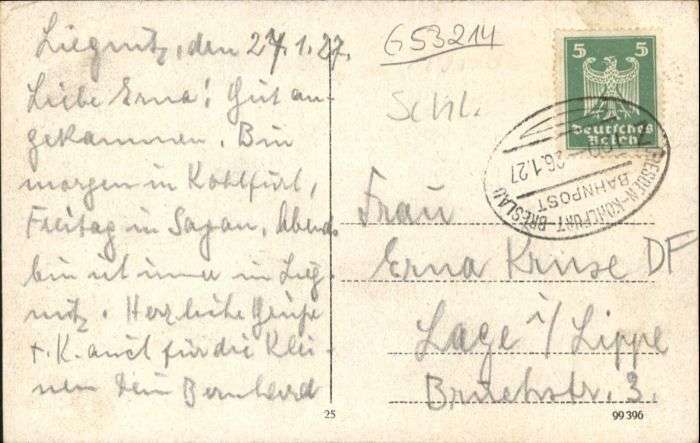 Liegnitz, den 27.1.27.
Liebe Erna! Gut an-
gekommen. Bin
morgen in Kohlfurt,
Freitag in Sagan, Abend.
bin ich immer in Lieg-
nitz. Herzliche Grüße
+ K. auch für die Klei-
nen Dein Bernhard
G53214
Schl.
5 5
Deutsches
Reich
DRESDEN-KOHLFURT-BRESLAU
26.1.27
BAHNPOST
Frau
Erna Kruse DF
Lage i/Lippe
Bruchstr. 3.
25
99396